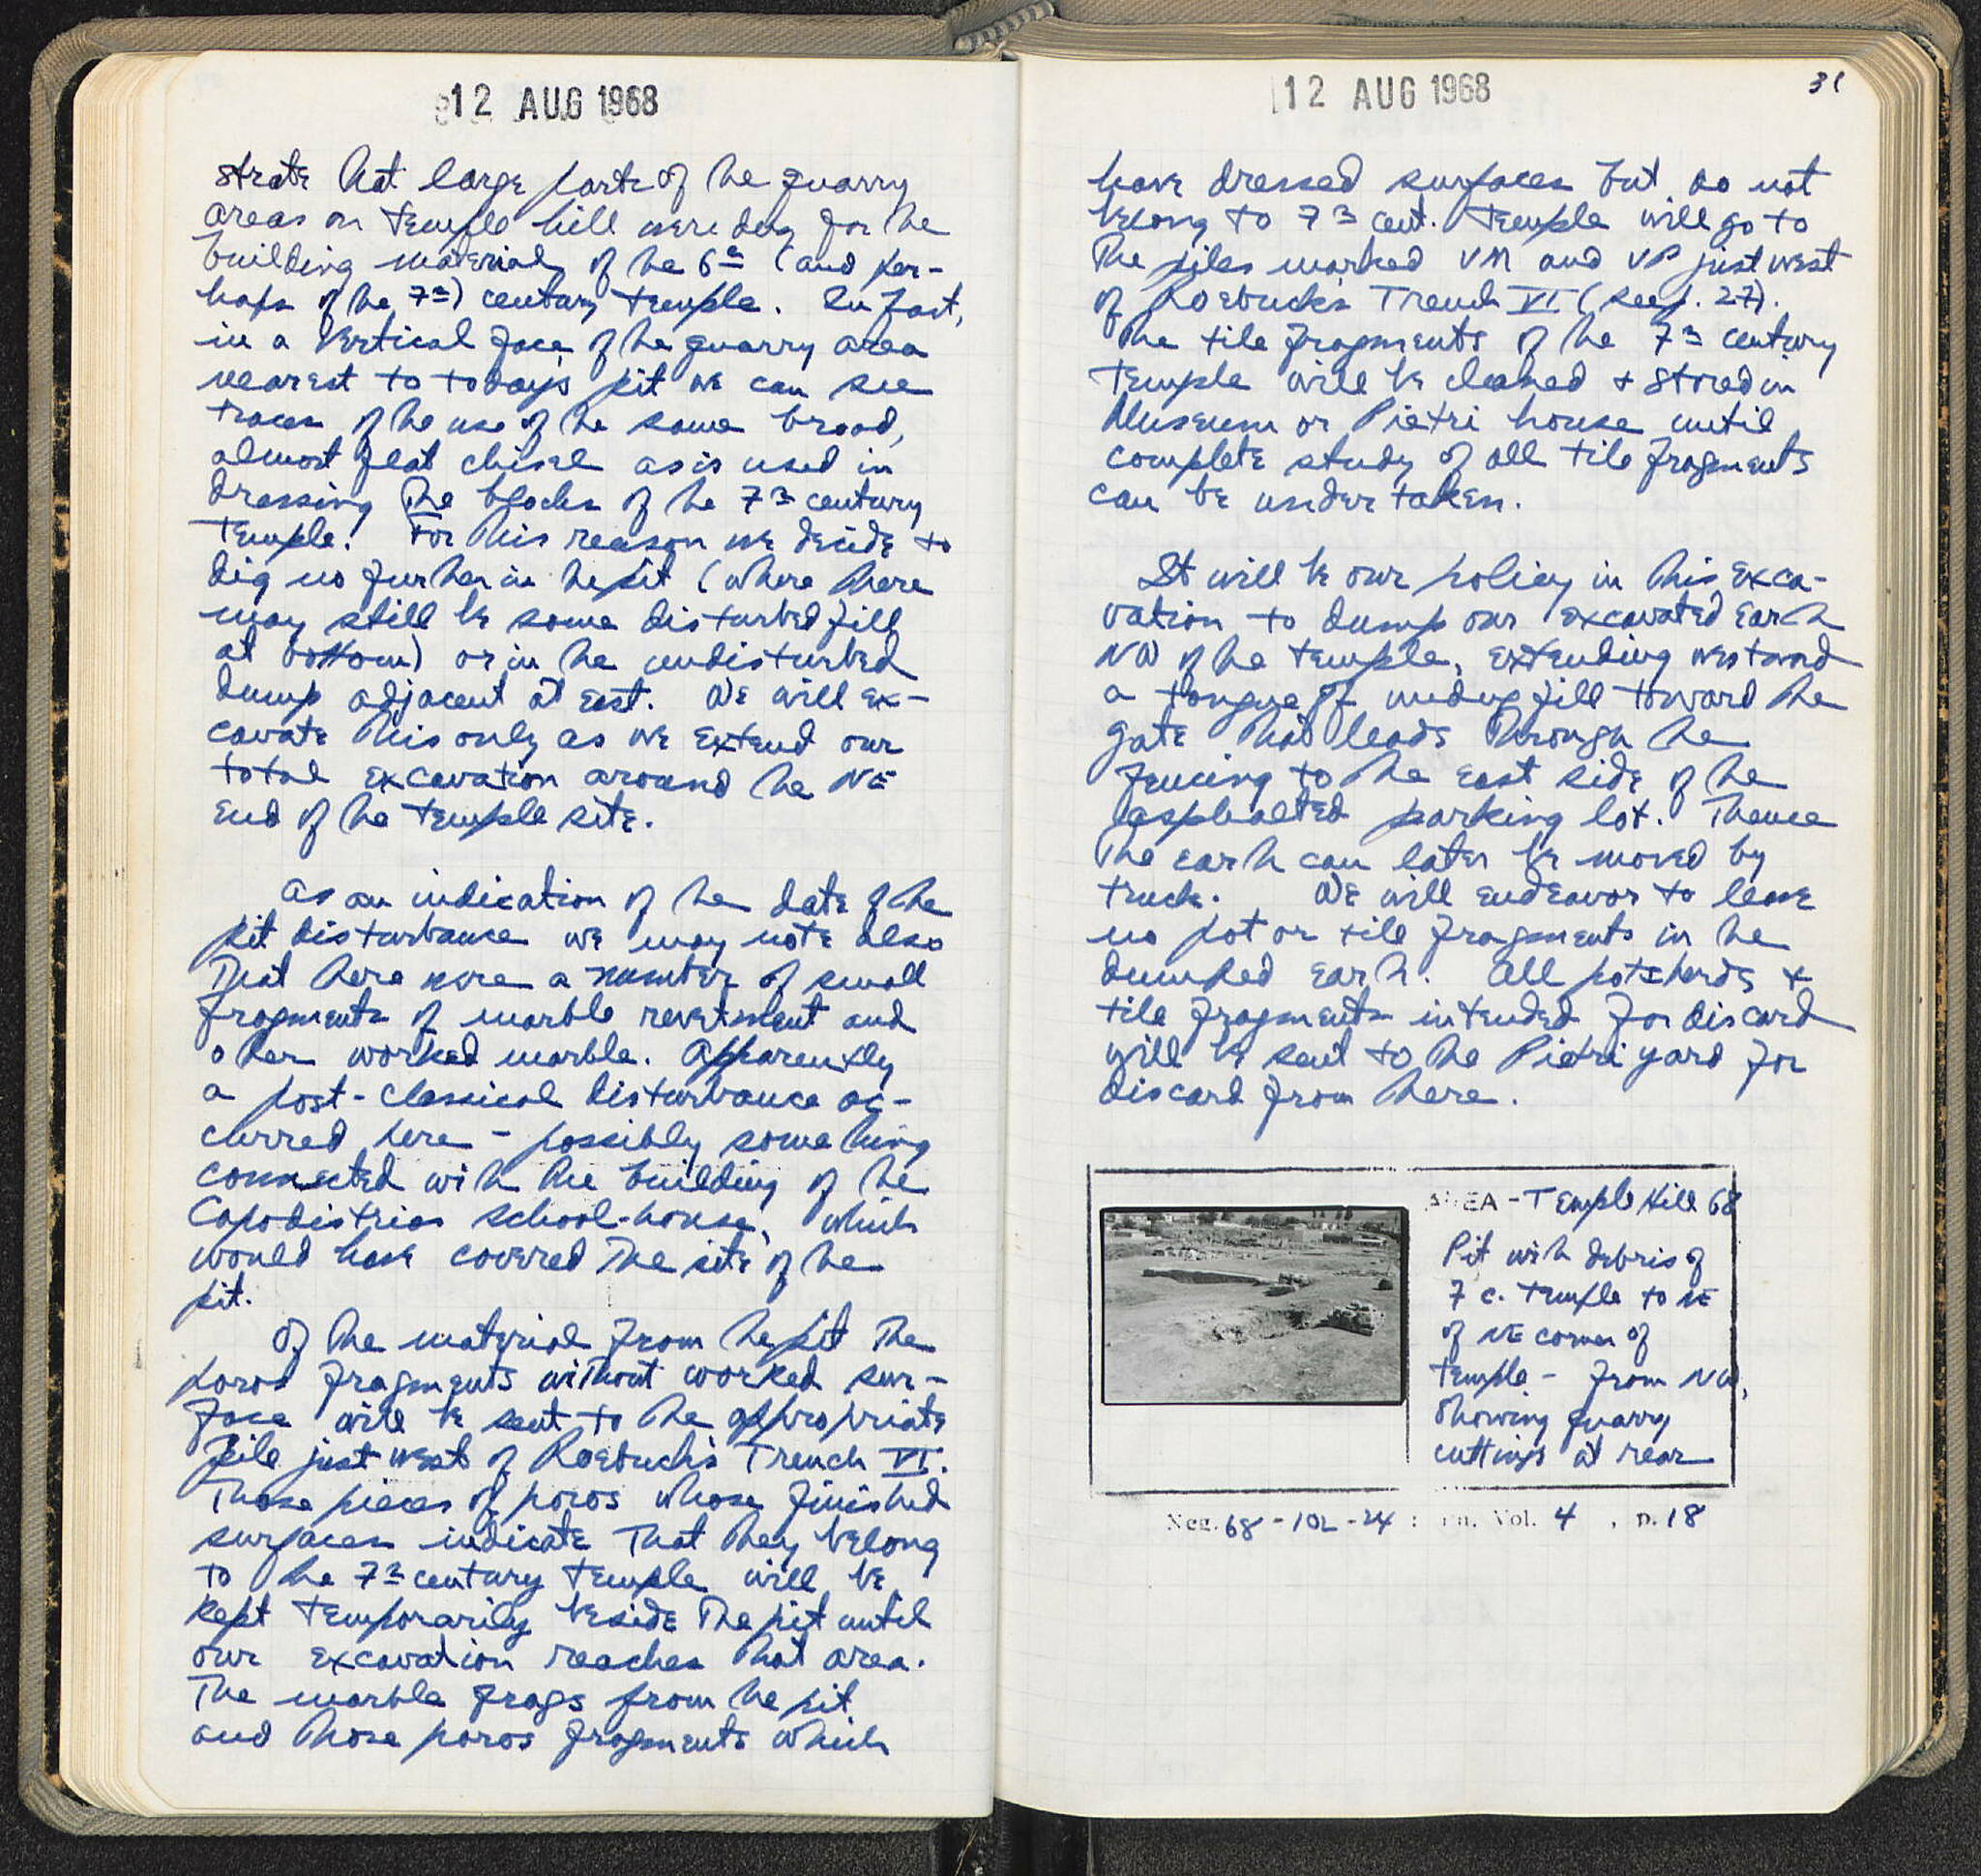 12 AUG 1968
strate that large parts of the quarry
areas on temple hill were dug for the
building material of the 6th (and per-
haps of the 7th) century temple. In fact,
in a vertical face of the quarry area
nearest to today's pit we can see
traces of the use of the same broad,
almost flat chisel as is used in
dressing the blocks of the 7th century
temple! For this reason we decide to
dig no further in the pit (where there
may still be some disturbed fill
at bottom) or in the undisturbed
dump adjacent at east. We will ex-
cavate this only as we extend our
total excavation around the NE
end of the temple site.
As an indication of the date of the
pit disturbance we may note also
that there were a number of small
fragments of marble revetment and
other worked marble. Apparently
a post-classical disturbance oc-
curred here - possibly something
connected with the building of the
Capodistrias school-house, which
would have covered the site of the
pit.
Of the material from the pit the
poros fragments without worked sur-
face will be sent to the appropriate
pile just west of Roebuck's Trench VI.
Those pieces of poros whose finished
surfaces indicate that they belong
to the 7th century temple will be
kept temporarily beside the pit until
our excavation reaches that area.
The marble frags from the pit
and those poros fragments which
12 AUG 1968
31
have dressed surfaces but do not
belong to 7th cent. temple will go to
the piles marked VM and VP just west
of Roebuck's Trench VI (see p. 27).
The tile fragments of the 7th century
temple will be cleaned + stored in
Museum or Pietri house until
complete study of all tile fragments
can be undertaken.
It will be our policy in this exca-
vation to dump our excavated earth
NW of the temple, extending westward
a tongue of undug fill toward the
gate that leads through the
fencing to the east side of the
asphalted parking lot. Thence
the earth can later be moved by
truck. We will endeavor to leave
no pot or tile fragments in the
dumped earth. All potsherds +
tile fragments intended for discard
will be sent to the Pietri yard for
discard from there.
AREA - Temple Hill 68
Pit with debris of
7 c. temple to NE
of NE corner of
temple - from NW,
showing quarry
cuttings at rear
Neg. 68-102-24 : Vol. 4, p. 18